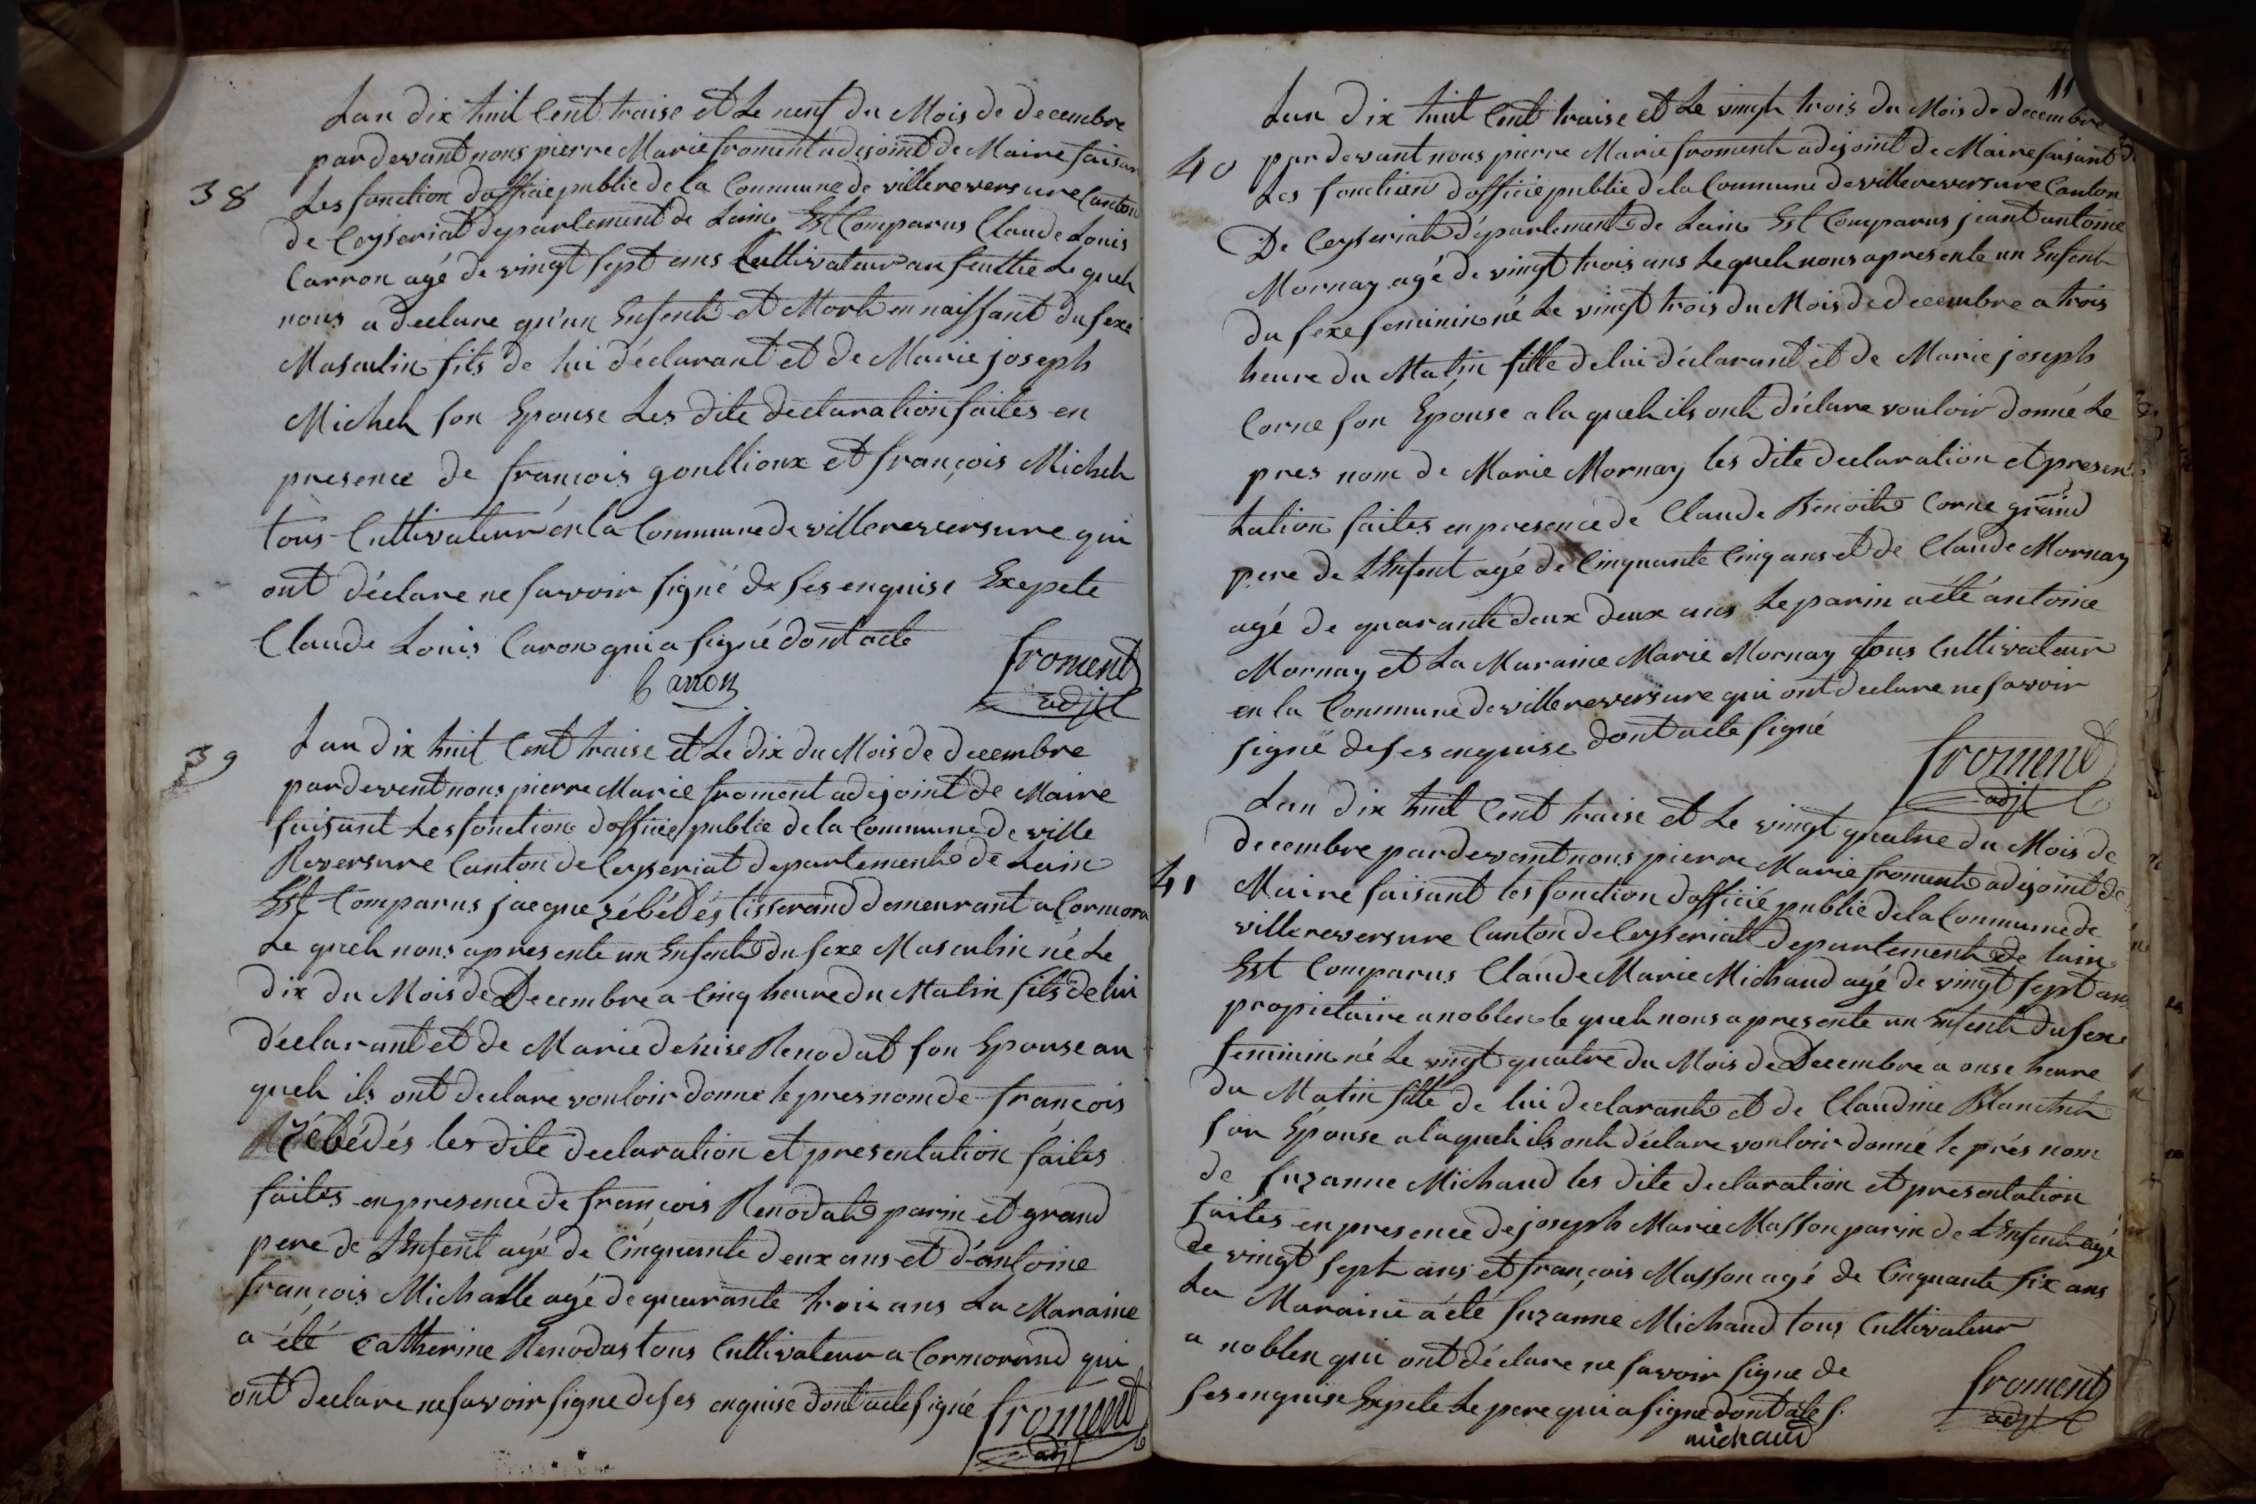 Lan dix huit Cent traise et Le neuf du Mois de decembre
pardevant nous pierre Marie froment adisoint de Maire faisan
38
Les fonction doffficie public de la Commune de villereversure Canton
de Ceyseriat departement de Lain Est Comparus Claude Louis
Carron agé de vingt sept ans Cultivateur au Le queh
nous a declare qu'un Enfenh et Morh en naissant du sexe
Masculin fils de lui déclarant et de Marie joseph
Micheh son Epouse Les dite declaration faites en
presence de francois goullioux et françois Micheh
tous Cultivateur en la Commune de villereversure qui
ont déclare ne savoir signé de ses enquise Exepete
Claude Louis Caron qui a signé dont acte
Carron
froment
adjt
39
Lan dix huit Cent traise et Le dix du Mois de decembre
pardevent nous pierre Marie froment adisoint de Maire
faisant Les fonction doffficie public de la Commune de ville
Reversure Canton de Ceyseriat departement de Lain
Est Comparus jacque zébédés tisserand demeurant a Cormora
Le queh nous apresente un Enfenh du sexe Masculin né Le
dix du Mois de Decembre a Cinq heure du Matin fils de lui
déclarant et de Marie denise Renodat son Epouse au
queh ils ont declare vouloir donné le presnom de françois
zébédés les dite declaration et presentation faites
faites en presence de françois Renodat parin et grand
pere de LEnfent agé de Cinquante deux ans et d'antoine
françois Michalle agé de quarante trois ans La Maraine
a été Catherine Renodas tous Cultivateur a Cormorand qui
ont declare ne savoir signe de ses enquise dont acte signé
froment
adjt
11
Lan dix huit Cent traise et Le vingh trois du Mois de decembre
40
pardevant nous pierre Marie fromenh adisoint de Maire faisant
Les fonction dofficie public de la Commune de villereversure Canton
De Ceyseriat département de Lain Est Comparus jeant antoine
Mornay agé de vingt trois ans Le queh nous apresente un Enfenh
du sexe feminin né Le vingt trois du Mois de decembre a trois
heure du Matin fille de lui déclarant et de Marie joseph
Corne son Epouse a la queh ils onh déclare vouloir donné Le
pres nom de Marie Mornay les dite declaration et presen
tation faites en presence de Claude Benoit Corne grand
pere de LEnfent agé de Cinquante Cinq ans et de Claude Mornay
agé de quarante deux deux ans Le parin a été antoine
Mornay et La Maraine Marie Mornay tous Cultivateur
en la Commune de villereversure qui ont declare ne savoir
signé de ses enquise dont acte signé
froment
adjt
Lan dix huit Cent traise et Le vingt quatre du Mois de
decembre pardevant nous pierre Marie froment adisoint de
41
Maire faisant les fonction dofficié public de la Commune de
villereversure Canton de Ceyseriat departement de lain
Est Comparus Claude Marie Michaud agé de vingt sept ans
propietaire a noblen le queh nous apresente un Enfenh du sexe
feminin né Le vingt quatre du Mois de Decembre a onse heure
du Matin fille de lui declarant et de Claudine
son Epouse a la queh ils onh déclare vouloir donné le prés nom
de suzanne Michaud les dite declaration et presentation
faites en presence de joseph Marie Masson parin de LEnfenh agé
de vingt sept ans et françois Masson agé de Cinquante six ans
La Maraine a été suzanne Michaud tous Cultivateur
a noblen qui ont déclare ne savoir signe de
ses enquise Expete Le pere qui a signe dont acte s.
michaud
froment
adjt